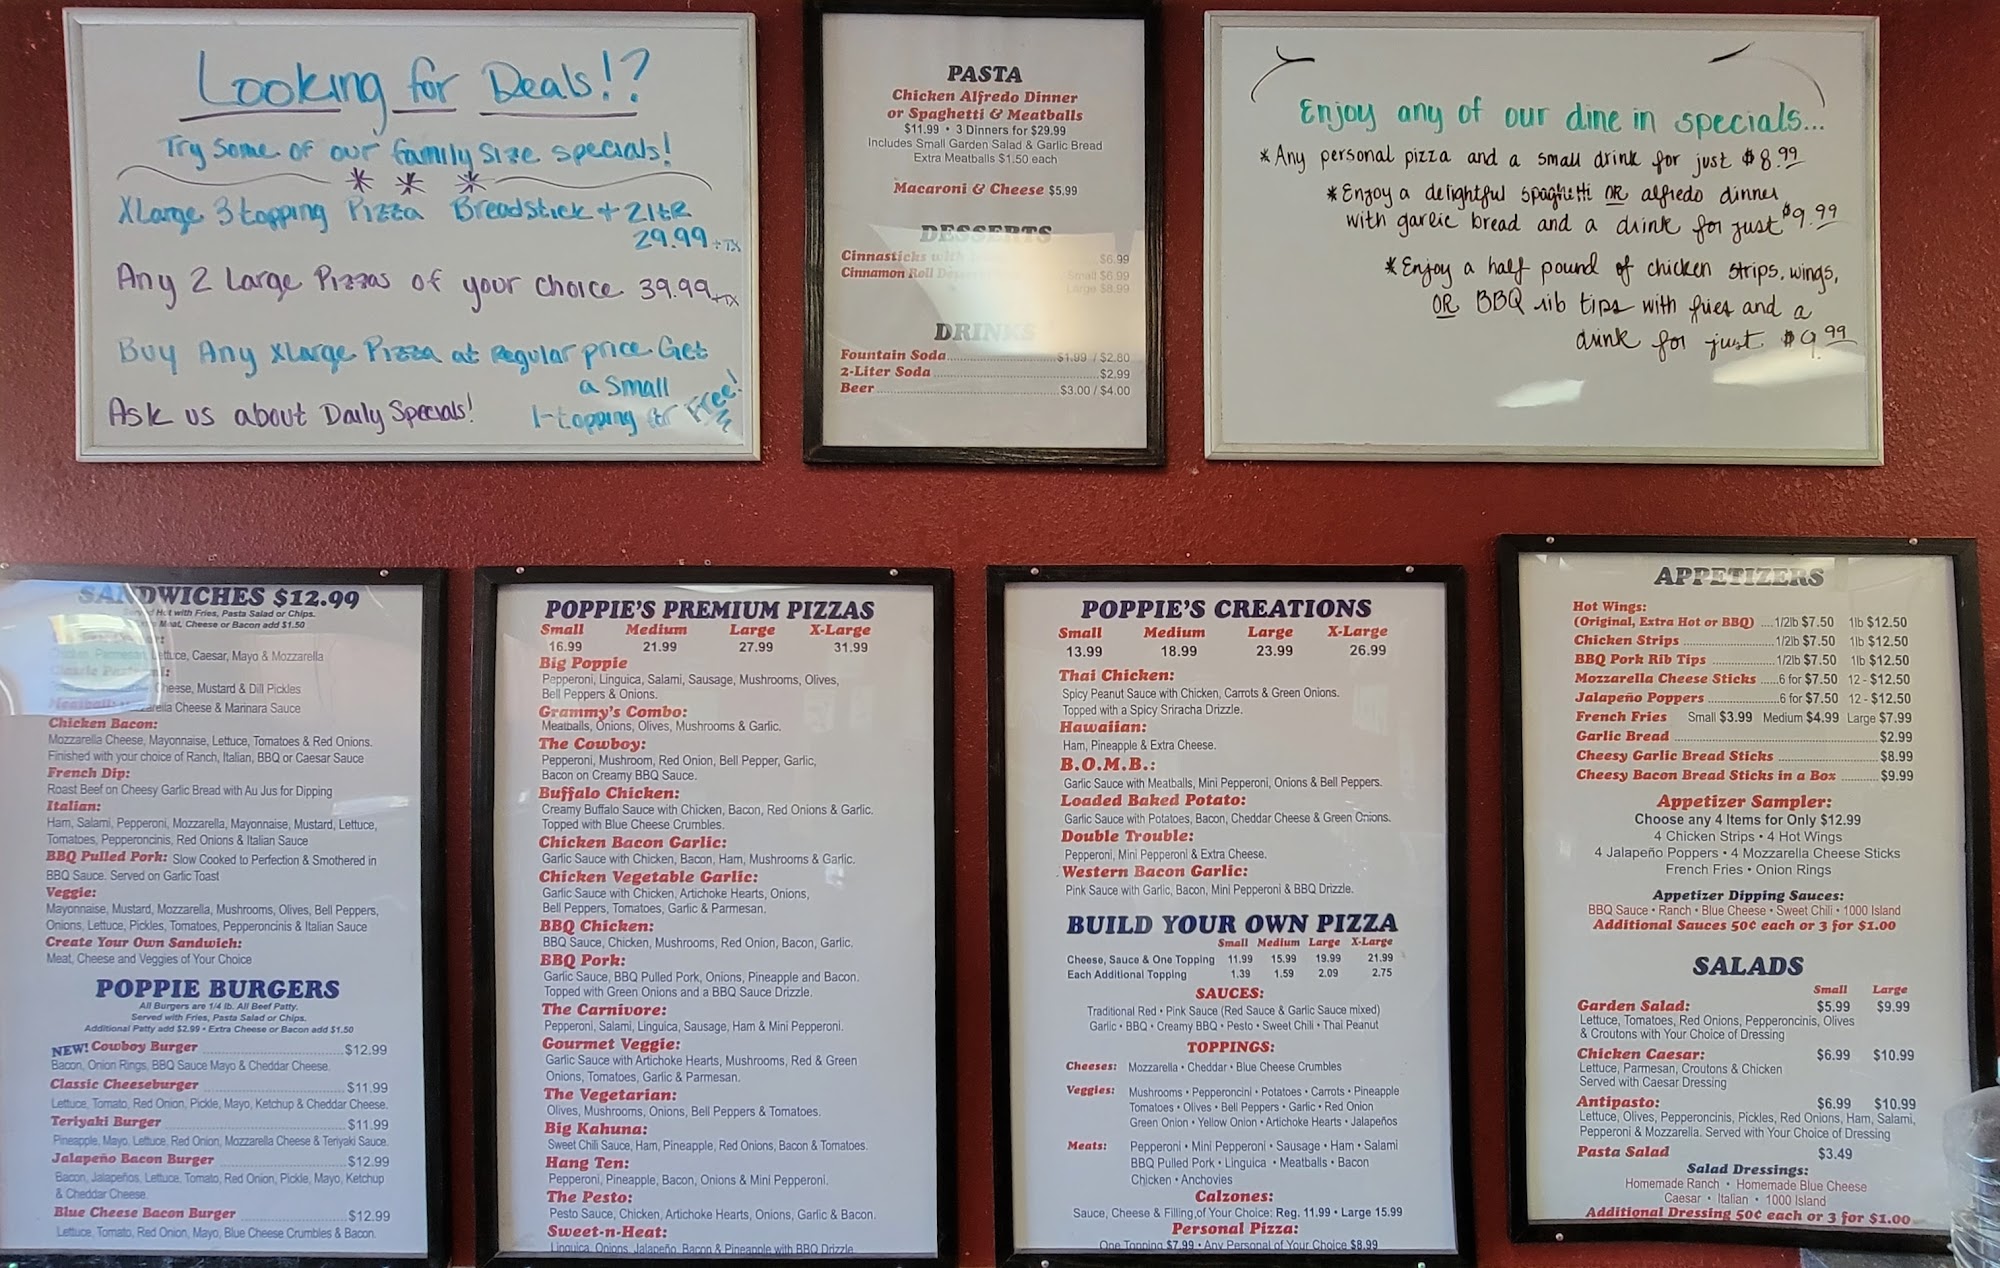 Looking for Deals!?
Try some of our family size specials!
XLarge 3 topping Pizza Breadstick + 2 ltr
29.99 + TX
Any 2 Large Pizzas of your choice 39.99 + TX
Buy Any XLarge Pizza at Regular price Get
a Small
1-topping for Free!
Ask us about Daily Specials!
PASTA
Chicken Alfredo Dinner
or Spaghetti & Meatballs
$11.99 • 3 Dinners for $29.99
Includes Small Garden Salad & Garlic Bread
Extra Meatballs $1.50 each
Macaroni & Cheese $5.99
DESSERTS
Cinnasticks with $6.99
Cinnamon Roll Small $6.99
Large $8.99
DRINKS
Fountain Soda $1.99 / $2.80
2-Liter Soda $2.99
Beer $3.00 / $4.00
Enjoy any of our dine in specials...
* Any personal pizza and a small drink for just $8.99
* Enjoy a delightful spaghetti OR alfredo dinner
with garlic bread and a drink for just $9.99
* Enjoy a half pound of chicken strips, wings,
OR BBQ rib tips with fries and a
drink for just $9.99
SANDWICHES $12.99
Served Hot with Fries, Pasta Salad or Chips.
Meat, Cheese or Bacon add $1.50
Lettuce, Caesar, Mayo & Mozzarella
Cheese, Mustard & Dill Pickles
Cheese & Marinara Sauce
Chicken Bacon:
Mozzarella Cheese, Mayonnaise, Lettuce, Tomatoes & Red Onions.
Finished with your choice of Ranch, Italian, BBQ or Caesar Sauce
French Dip:
Roast Beef on Cheesy Garlic Bread with Au Jus for Dipping
Italian:
Ham, Salami, Pepperoni, Mozzarella, Mayonnaise, Mustard, Lettuce,
Tomatoes, Pepperoncinis, Red Onions & Italian Sauce
BBQ Pulled Pork: Slow Cooked to Perfection & Smothered in
BBQ Sauce. Served on Garlic Toast
Veggie:
Mayonnaise, Mustard, Mozzarella, Mushrooms, Olives, Bell Peppers,
Onions, Lettuce, Pickles, Tomatoes, Pepperoncinis & Italian Sauce
Create Your Own Sandwich:
Meat, Cheese and Veggies of Your Choice
POPPIE BURGERS
All Burgers are 1/4 lb. All Beef Patty.
Served with Fries, Pasta Salad or Chips.
Additional Patty add $2.99 • Extra Cheese or Bacon add $1.50
NEW! Cowboy Burger $12.99
Bacon, Onion Rings, BBQ Sauce Mayo & Cheddar Cheese.
Classic Cheeseburger $11.99
Lettuce, Tomato, Red Onion, Pickle, Mayo, Ketchup & Cheddar Cheese.
Teriyaki Burger $11.99
Pineapple, Mayo, Lettuce, Red Onion, Mozzarella Cheese & Teriyaki Sauce.
Jalapeño Bacon Burger $12.99
Bacon, Jalapeños, Lettuce, Tomato, Red Onion, Pickle, Mayo, Ketchup
& Cheddar Cheese.
Blue Cheese Bacon Burger $12.99
Lettuce, Tomato, Red Onion, Mayo, Blue Cheese Crumbles & Bacon.
POPPIE'S PREMIUM PIZZAS
Small Medium Large X-Large
16.99 21.99 27.99 31.99
Big Poppie
Pepperoni, Linguica, Salami, Sausage, Mushrooms, Olives,
Bell Peppers & Onions.
Grammy's Combo:
Meatballs, Onions, Olives, Mushrooms & Garlic.
The Cowboy:
Pepperoni, Mushroom, Red Onion, Bell Pepper, Garlic,
Bacon on Creamy BBQ Sauce.
Buffalo Chicken:
Creamy Buffalo Sauce with Chicken, Bacon, Red Onions & Garlic.
Topped with Blue Cheese Crumbles.
Chicken Bacon Garlic:
Garlic Sauce with Chicken, Bacon, Ham, Mushrooms & Garlic.
Chicken Vegetable Garlic:
Garlic Sauce with Chicken, Artichoke Hearts, Onions,
Bell Peppers, Tomatoes, Garlic & Parmesan.
BBQ Chicken:
BBQ Sauce, Chicken, Mushrooms, Red Onion, Bacon, Garlic.
BBQ Pork:
Garlic Sauce, BBQ Pulled Pork, Onions, Pineapple and Bacon.
Topped with Green Onions and a BBQ Sauce Drizzle.
The Carnivore:
Pepperoni, Salami, Linguica, Sausage, Ham & Mini Pepperoni.
Gourmet Veggie:
Garlic Sauce with Artichoke Hearts, Mushrooms, Red & Green
Onions, Tomatoes, Garlic & Parmesan.
The Vegetarian:
Olives, Mushrooms, Onions, Bell Peppers & Tomatoes.
Big Kahuna:
Sweet Chili Sauce, Ham, Pineapple, Red Onions, Bacon & Tomatoes.
Hang Ten:
Pepperoni, Pineapple, Bacon, Onions & Mini Pepperoni.
The Pesto:
Pesto Sauce, Chicken, Artichoke Hearts, Onions, Garlic & Bacon.
Sweet-n-Heat:
Linguica, Onions, Jalapeño, Bacon & Pineapple with BBQ Drizzle
POPPIE'S CREATIONS
Small Medium Large X-Large
13.99 18.99 23.99 26.99
Thai Chicken:
Spicy Peanut Sauce with Chicken, Carrots & Green Onions.
Topped with a Spicy Sriracha Drizzle.
Hawaiian:
Ham, Pineapple & Extra Cheese.
B.O.M.B.:
Garlic Sauce with Meatballs, Mini Pepperoni, Onions & Bell Peppers.
Loaded Baked Potato:
Garlic Sauce with Potatoes, Bacon, Cheddar Cheese & Green Onions.
Double Trouble:
Pepperoni, Mini Pepperoni & Extra Cheese.
Western Bacon Garlic:
Pink Sauce with Garlic, Bacon, Mini Pepperoni & BBQ Drizzle.
BUILD YOUR OWN PIZZA
Small Medium Large X-Large
Cheese, Sauce & One Topping 11.99 15.99 19.99 21.99
Each Additional Topping 1.39 1.59 2.09 2.75
SAUCES:
Traditional Red • Pink Sauce (Red Sauce & Garlic Sauce mixed)
Garlic • BBQ • Creamy BBQ • Pesto • Sweet Chili • Thai Peanut
TOPPINGS:
Cheeses: Mozzarella • Cheddar • Blue Cheese Crumbles
Veggies: Mushrooms • Pepperoncini • Potatoes • Carrots • Pineapple
Tomatoes • Olives • Bell Peppers • Garlic • Red Onion
Green Onion • Yellow Onion • Artichoke Hearts • Jalapeños
Meats: Pepperoni • Mini Pepperoni • Sausage • Ham • Salami
BBQ Pulled Pork • Linguica • Meatballs • Bacon
Chicken • Anchovies
Calzones:
Sauce, Cheese & Filling,of Your Choice: Reg. 11.99 • Large 15.99
Personal Pizza:
One Topping $7.99 • Any Personal of Your Choice $8.99
APPETIZERS
Hot Wings:
(Original, Extra Hot or BBQ) ....1/2lb $7.50 1lb $12.50
Chicken Strips 1/2lb $7.50 1lb $12.50
BBQ Pork Rib Tips 1/2lb $7.50 1lb $12.50
Mozzarella Cheese Sticks .....6 for $7.50 12 - $12.50
Jalapeño Poppers 6 for $7.50 12 - $12.50
French Fries Small $3.99 Medium $4.99 Large $7.99
Garlic Bread $2.99
Cheesy Garlic Bread Sticks $8.99
Cheesy Bacon Bread Sticks in a Box $9.99
Appetizer Sampler:
Choose any 4 Items for Only $12.99
4 Chicken Strips • 4 Hot Wings
4 Jalapeño Poppers • 4 Mozzarella Cheese Sticks
French Fries • Onion Rings
Appetizer Dipping Sauces:
BBQ Sauce • Ranch • Blue Cheese • Sweet Chili • 1000 Island
Additional Sauces 50¢ each or 3 for $1.00
SALADS
Small Large
Garden Salad: $5.99 $9.99
Lettuce, Tomatoes, Red Onions, Pepperoncinis, Olives
& Croutons with Your Choice of Dressing
Chicken Caesar: $6.99 $10.99
Lettuce, Parmesan, Croutons & Chicken
Served with Caesar Dressing
Antipasto: $6.99 $10.99
Lettuce, Olives, Pepperoncinis, Pickles, Red Onions, Ham, Salami,
Pepperoni & Mozzarella. Served with Your Choice of Dressing
Pasta Salad $3.49
Salad Dressings:
Homemade Ranch • Homemade Blue Cheese
Caesar • Italian • 1000 Island
Additional Dressing 50¢ each or 3 for $1.00